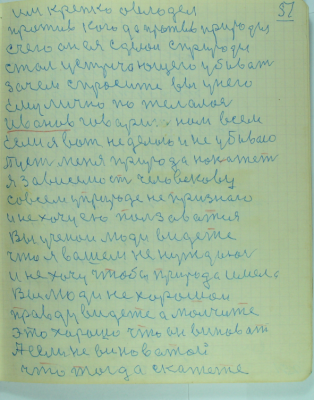 51
им крепко овлодел
против кого да против природы
с чего он ея
стал убивает
зачем спросите вы у него
ему лично по желалося
Иванов говари: нам всем
если я вот не делаю и не убиваю
пуст меня природа накажет
я зависемост человекову
совсем у природе не признаю
и не хочу ею ползоватия
Вы ученои люди видете
что я вашем не нуждаюс
и не хочу чтобы природа имела
Вы люди не хорошои
правду видете а молчите
это харашо что он виноват
А если не виноватои
что тогда скажете